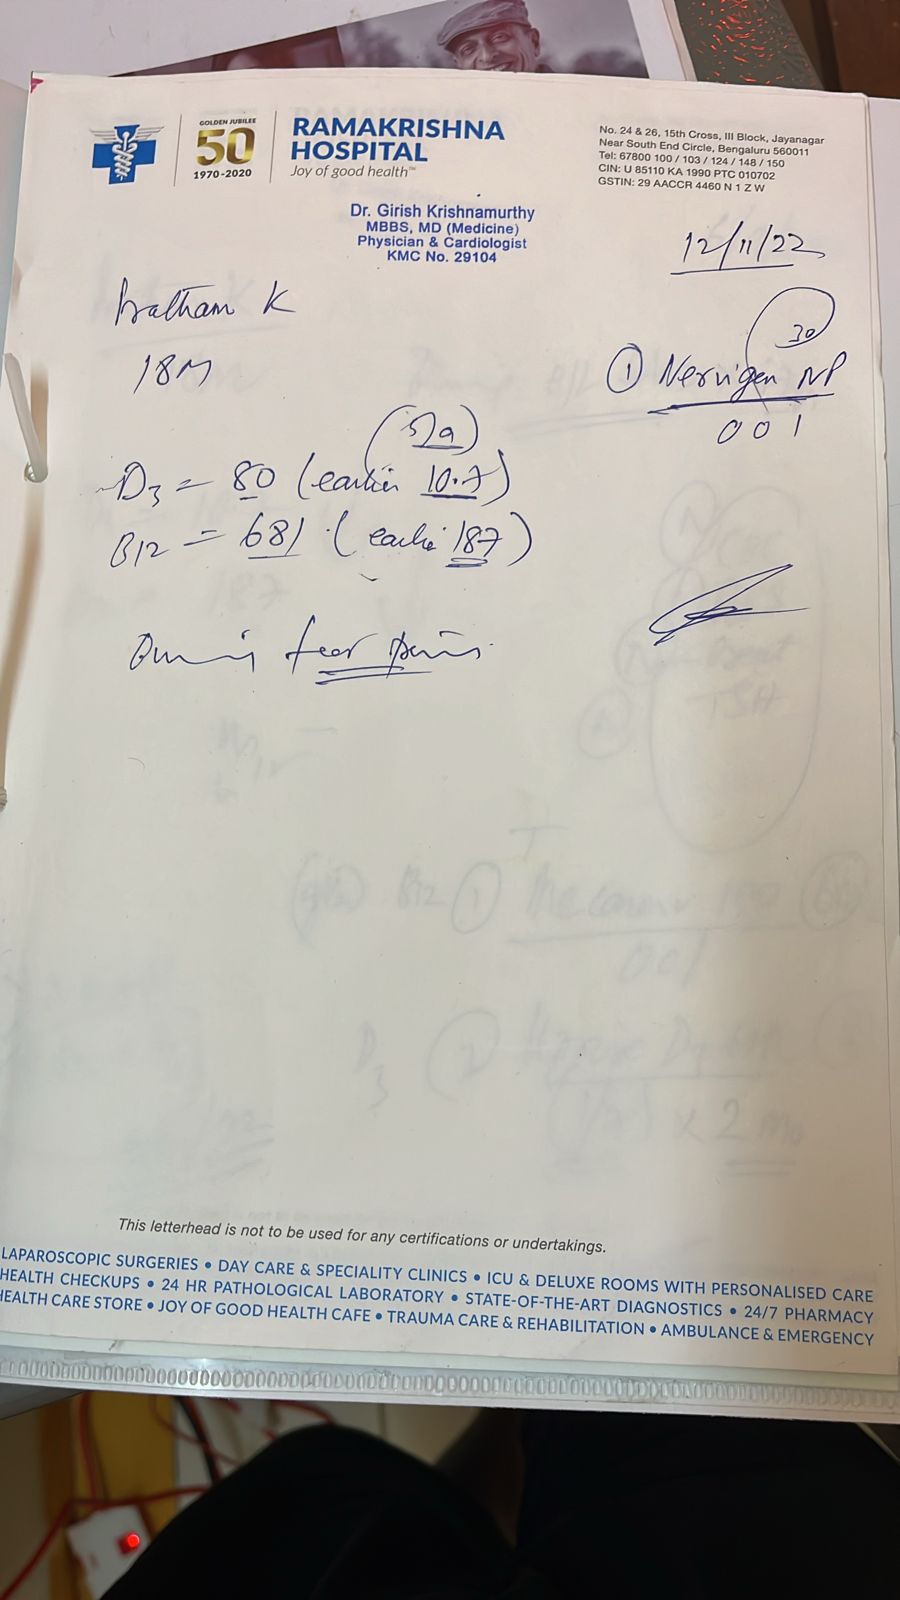 GOLDEN JUBILEE
50
1970-2020
RAMAKRISHNA
HOSPITAL
Joy of good health™
No. 24 & 26, 15th Cross, III Block, Jayanagar
Near South End Circle, Bengaluru 560011
Tel: 67800 100 / 103 / 124 / 148 / 150
CIN: U 85110 KA 1990 PTC 010702
GSTIN: 29 AACCR 4460 N 1 Z W
Dr. Girish Krishnamurthy
MBBS, MD (Medicine)
Physician & Cardiologist
KMC No. 29104
12/11/22
Pratham K
18M
30
① Nervigen NP
0 0 1
D3 = 80 (earlier 10.7)
B12 = 681 (earlier 187)
This letterhead is not to be used for any certifications or undertakings.
LAPAROSCOPIC SURGERIES • DAY CARE & SPECIALITY CLINICS • ICU & DELUXE ROOMS WITH PERSONALISED CARE
HEALTH CHECKUPS • 24 HR PATHOLOGICAL LABORATORY • STATE-OF-THE-ART DIAGNOSTICS • 24/7 PHARMACY
HEALTH CARE STORE • JOY OF GOOD HEALTH CAFE • TRAUMA CARE & REHABILITATION • AMBULANCE & EMERGENCY